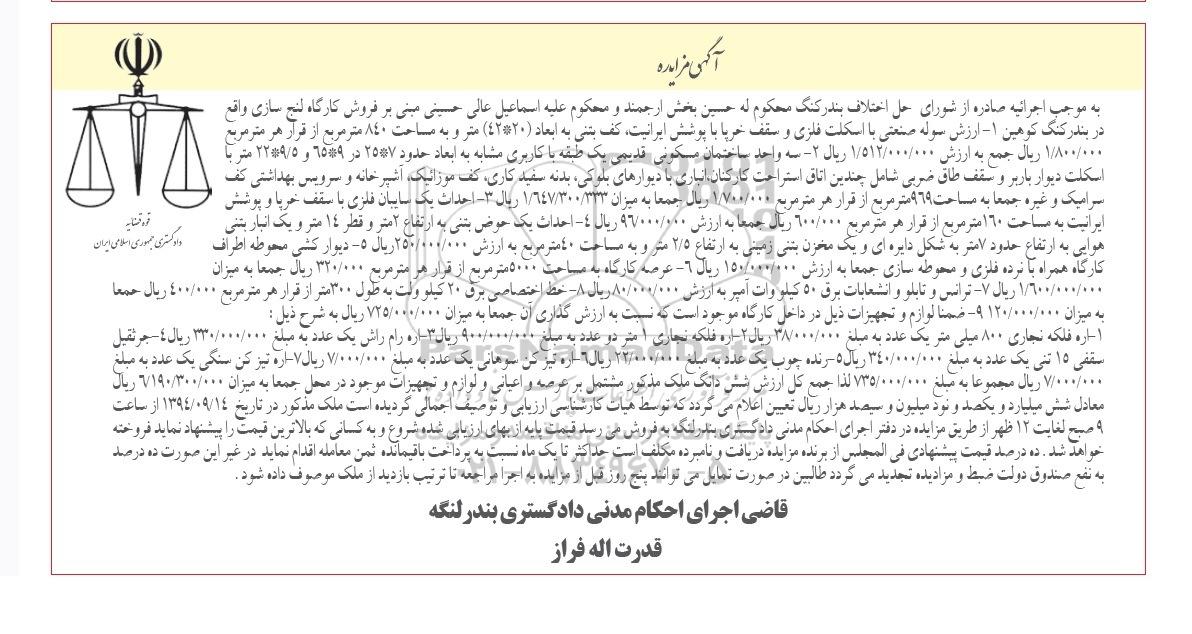 آگهی مزایده
قوه قضائیه
دادگستری جمهوری اسلامی ایران
به موجب اجرائیه صادره از شورای حل اختلاف بندرکنگ محکوم له حسین بخش ارجمند و محکوم علیه اسماعیل عالی حسینی مبنی بر فروش کارگاه لنج سازی واقع
در بندرکنگ کوهین ۱- ارزش سوله صنعتی با اسکلت فلزی و سقف خرپا با پوشش ایرانیت، کف بتنی به ابعاد (۲۰*۴۲) متر و به مساحت ۸۴۰ مترمربع از قرار هر مترمربع
۱/۸۰۰/۰۰۰ ریال جمع به ارزش ۱/۵۱۲/۰۰۰/۰۰۰ ریال ۲- سه واحد ساختمان مسکونی قدیمی یک طبقه با کاربری مشابه به ابعاد حدود ۷*۲۵ در ۹*۶۵ و ۹/۵*۲۲ متر با
اسکلت دیوار باربر و سقف طاق ضربی شامل چندین اتاق استراحت کارکنان،انباری با دیوارهای بلوکی، بدنه سفید کاری، کف موزائیک، آشپزخانه و سرویس بهداشتی کف
سرامیک و غیره جمعا به مساحت۹۶۹مترمربع از قرار هر مترمربع ۱/۷۰۰/۰۰۰ ریال جمعا به میزان ۱/۶۴۷/۳۰۰/۳۳۳ ریال ۳- احداث یک سایبان فلزی با سقف خرپا و پوشش
ایرانیت به مساحت ۱۶۰مترمربع از قرار هر مترمربع ۶۰۰/۰۰۰ ریال جمعا به ارزش ۹۶/۰۰۰/۰۰۰ ریال ۴- احداث یک حوض بتنی به ارتفاع ۲متر و قطر ۱۴ متر و یک انبار بتنی
هوایی به ارتفاع حدود ۷متر به شکل دایره ای و یک مخزن بتنی زمینی به ارتفاع ۲/۵ متر و به مساحت ۴۰مترمربع به ارزش ۲۵۰/۰۰۰/۰۰۰ریال ۵- دیوار کشی محوطه اطراف
کارگاه همراه با نرده فلزی و محوطه سازی جمعا به ارزش ۱۵۰/۰۰۰/۰۰۰ ریال ۶- عرصه کارگاه به مساحت ۵۰۰۰مترمربع از قرار هر مترمربع ۳۲۰/۰۰۰ ریال جمعا به میزان
۱/۶۰۰/۰۰۰/۰۰۰ ریال ۷- ترانس و تابلو و انشعابات برق ۵۰ کیلو وات آمپر به ارزش ۸۰/۰۰۰/۰۰۰ ریال ۸- خط اختصاصی برق ۲۰ کیلو ولت به طول ۳۰۰متر از قرار هر مترمربع ۴۰۰/۰۰۰ ریال جمعا
به میزان ۱۲۰/۰۰۰/۰۰۰ ۹- ضمنا لوازم و تجهیزات ذیل در داخل کارگاه موجود است که نسبت به ارزش گذاری آن جمعا به میزان ۷۲۵/۰۰۰/۰۰۰ ریال به شرح ذیل :
۱-اره فلکه نجاری ۸۰۰ میلی متر یک عدد به مبلغ ۳۸/۰۰۰/۰۰۰ ریال۲-اره فلکه نجاری ۱ متر دو عدد به مبلغ ۹۰۰/۰۰۰/۰۰۰ ریال۳-اره رام راش یک عدد به مبلغ ۳۳۰/۰۰۰/۰۰۰ ریال۴-جرثقیل
سقفی ۱۵ تنی یک عدد به مبلغ ۳۴۰/۰۰۰/۰۰۰ ریال۵-رنده چوب یک عدد به مبلغ ۲۲/۰۰۰/۰۰۰ ریال۶-اره تیز کن سوهانی یک عدد به مبلغ ۷/۰۰۰/۰۰۰ ریال۷-اره تیز کن سنگی یک عدد به مبلغ
۷/۰۰۰/۰۰۰ ریال مجموعا به مبلغ ۷۳۵/۰۰۰/۰۰۰ لذا جمع کل ارزش شش دانگ ملک مذکور مشتمل بر عرصه و اعیانی و لوازم و تجهیزات موجود در محل جمعا به میزان ۶/۱۹۰/۳۰۰/۰۰۰ ریال
معادل شش میلیارد و یکصد و نود میلیون و سیصد هزار ریال تعیین اعلام می گردد که توسط هیات کارشناسی ارزیابی و توصیف اجمالی گردیده است ملک مذکور در تاریخ ۱۳۹۴/۰۹/۱۴ از ساعت
۹ صبح لغایت ۱۲ ظهر از طریق مزایده در دفتر اجرای احکام مدنی دادگستری بندرلنگه به فروش می رسد قیمت پایه از بهای ارزیابی شده شروع و به کسانی که بالاترین قیمت را پیشنهاد نماید فروخته
خواهد شد . ده درصد قیمت پیشنهادی فی المجلس از برنده مزایده دریافت و نامبرده مکلف است حداکثر تا یک ماه نسبت به پرداخت باقیمانده ثمن معامله اقدام نماید در غیر این صورت ده درصد
به نفع صندوق دولت ضبط و مزادیده تجدید می گردد طالبین در صورت تمایل می توانند پنج روز قبل از مزایده به اجرا مراجعه تا ترتیب بازدید از ملک موصوف داده شود .
قاضی اجرای احکام مدنی دادگستری بندرلنگه
قدرت اله فراز
ParsNamadData
۰۲۱-۸۸۳۴۹۶۷۰-۵